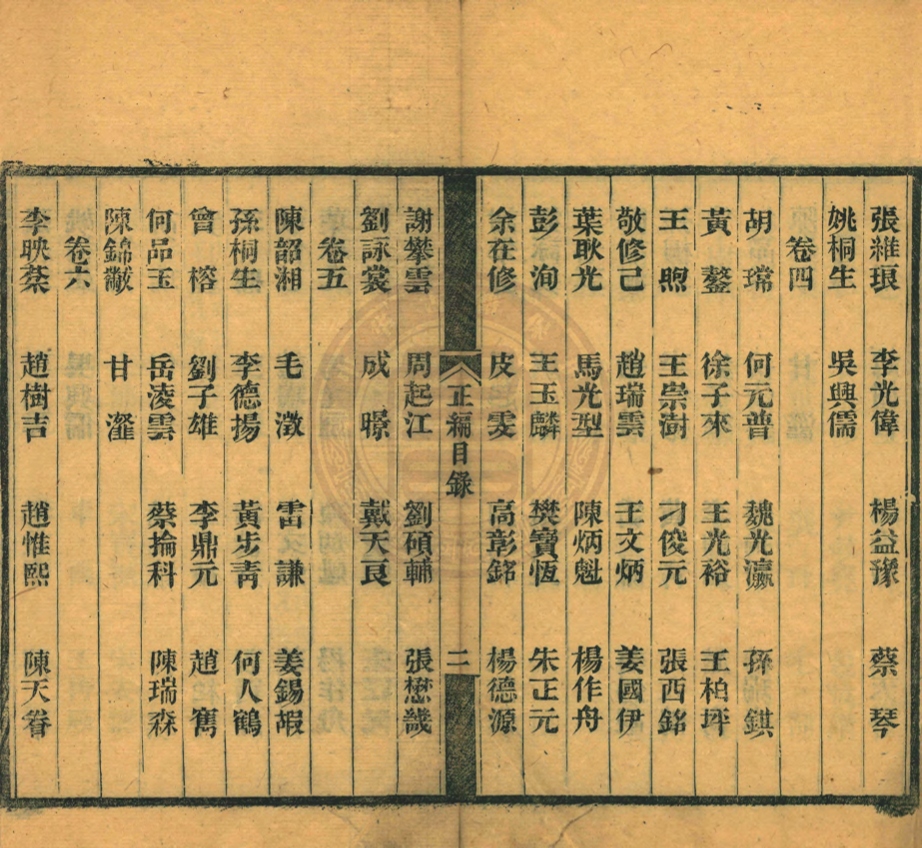 張維琅 李光偉 楊益豫 蔡琴
姚桐生 吳興儒
卷四
胡瑺 何元普 魏光瀛 孫錤
黃鏊 徐子來 王光裕 王柏坪
王煦 王崇澍 刁俊元 張西銘
敬修己 趙瑞雲 王文炳 姜國伊
葉耿光 馬光型 陳炳魁 楊作舟
彭洵 王玉麟 樊寶恆 朱正元
余在修 皮雯 高彰銘 楊德源
正編目錄 二
謝攀雲 周起江 劉碩輔 張懋畿
劉詠裳 成暻 戴天良
卷五
陳韶湘 毛澂 雷謙 姜錫嘏
孫桐生 李德揚 黃步青 何人鶴
曾榕 劉子雄 李鼎元 趙舊
何品玉 岳淩雲 蔡掄科 陳瑞森
陳錦黻 甘瀣
卷六
李映棻 趙樹吉 趙惟熙 陳天眷